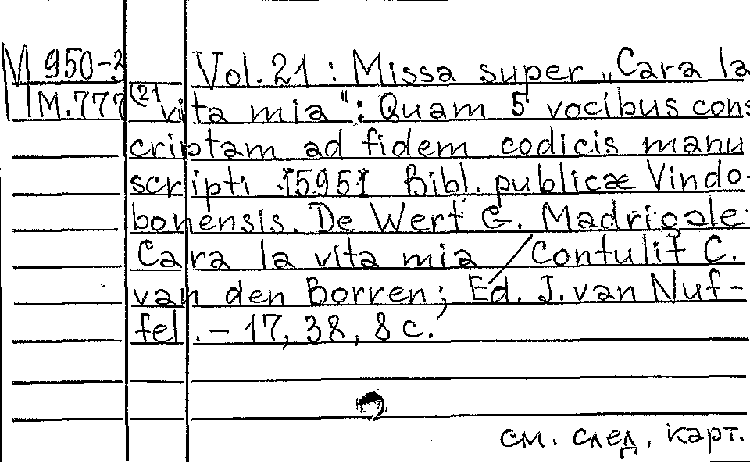 М 950-3 Vol. 21 : Missa super „Cara la
М.777 (21 vita mia": Quam 5 vocibus cons
criptam ad fidem codicis manu
scripti 15951 Bibl. publicæ Vindo-
bonensis. De Wert G. Madrigale
Cara la vita mia / Contulit C.
van den Borren; Ed. J. van Nuf-
fel. – 17, 38, 8 с.
см. след. карт.